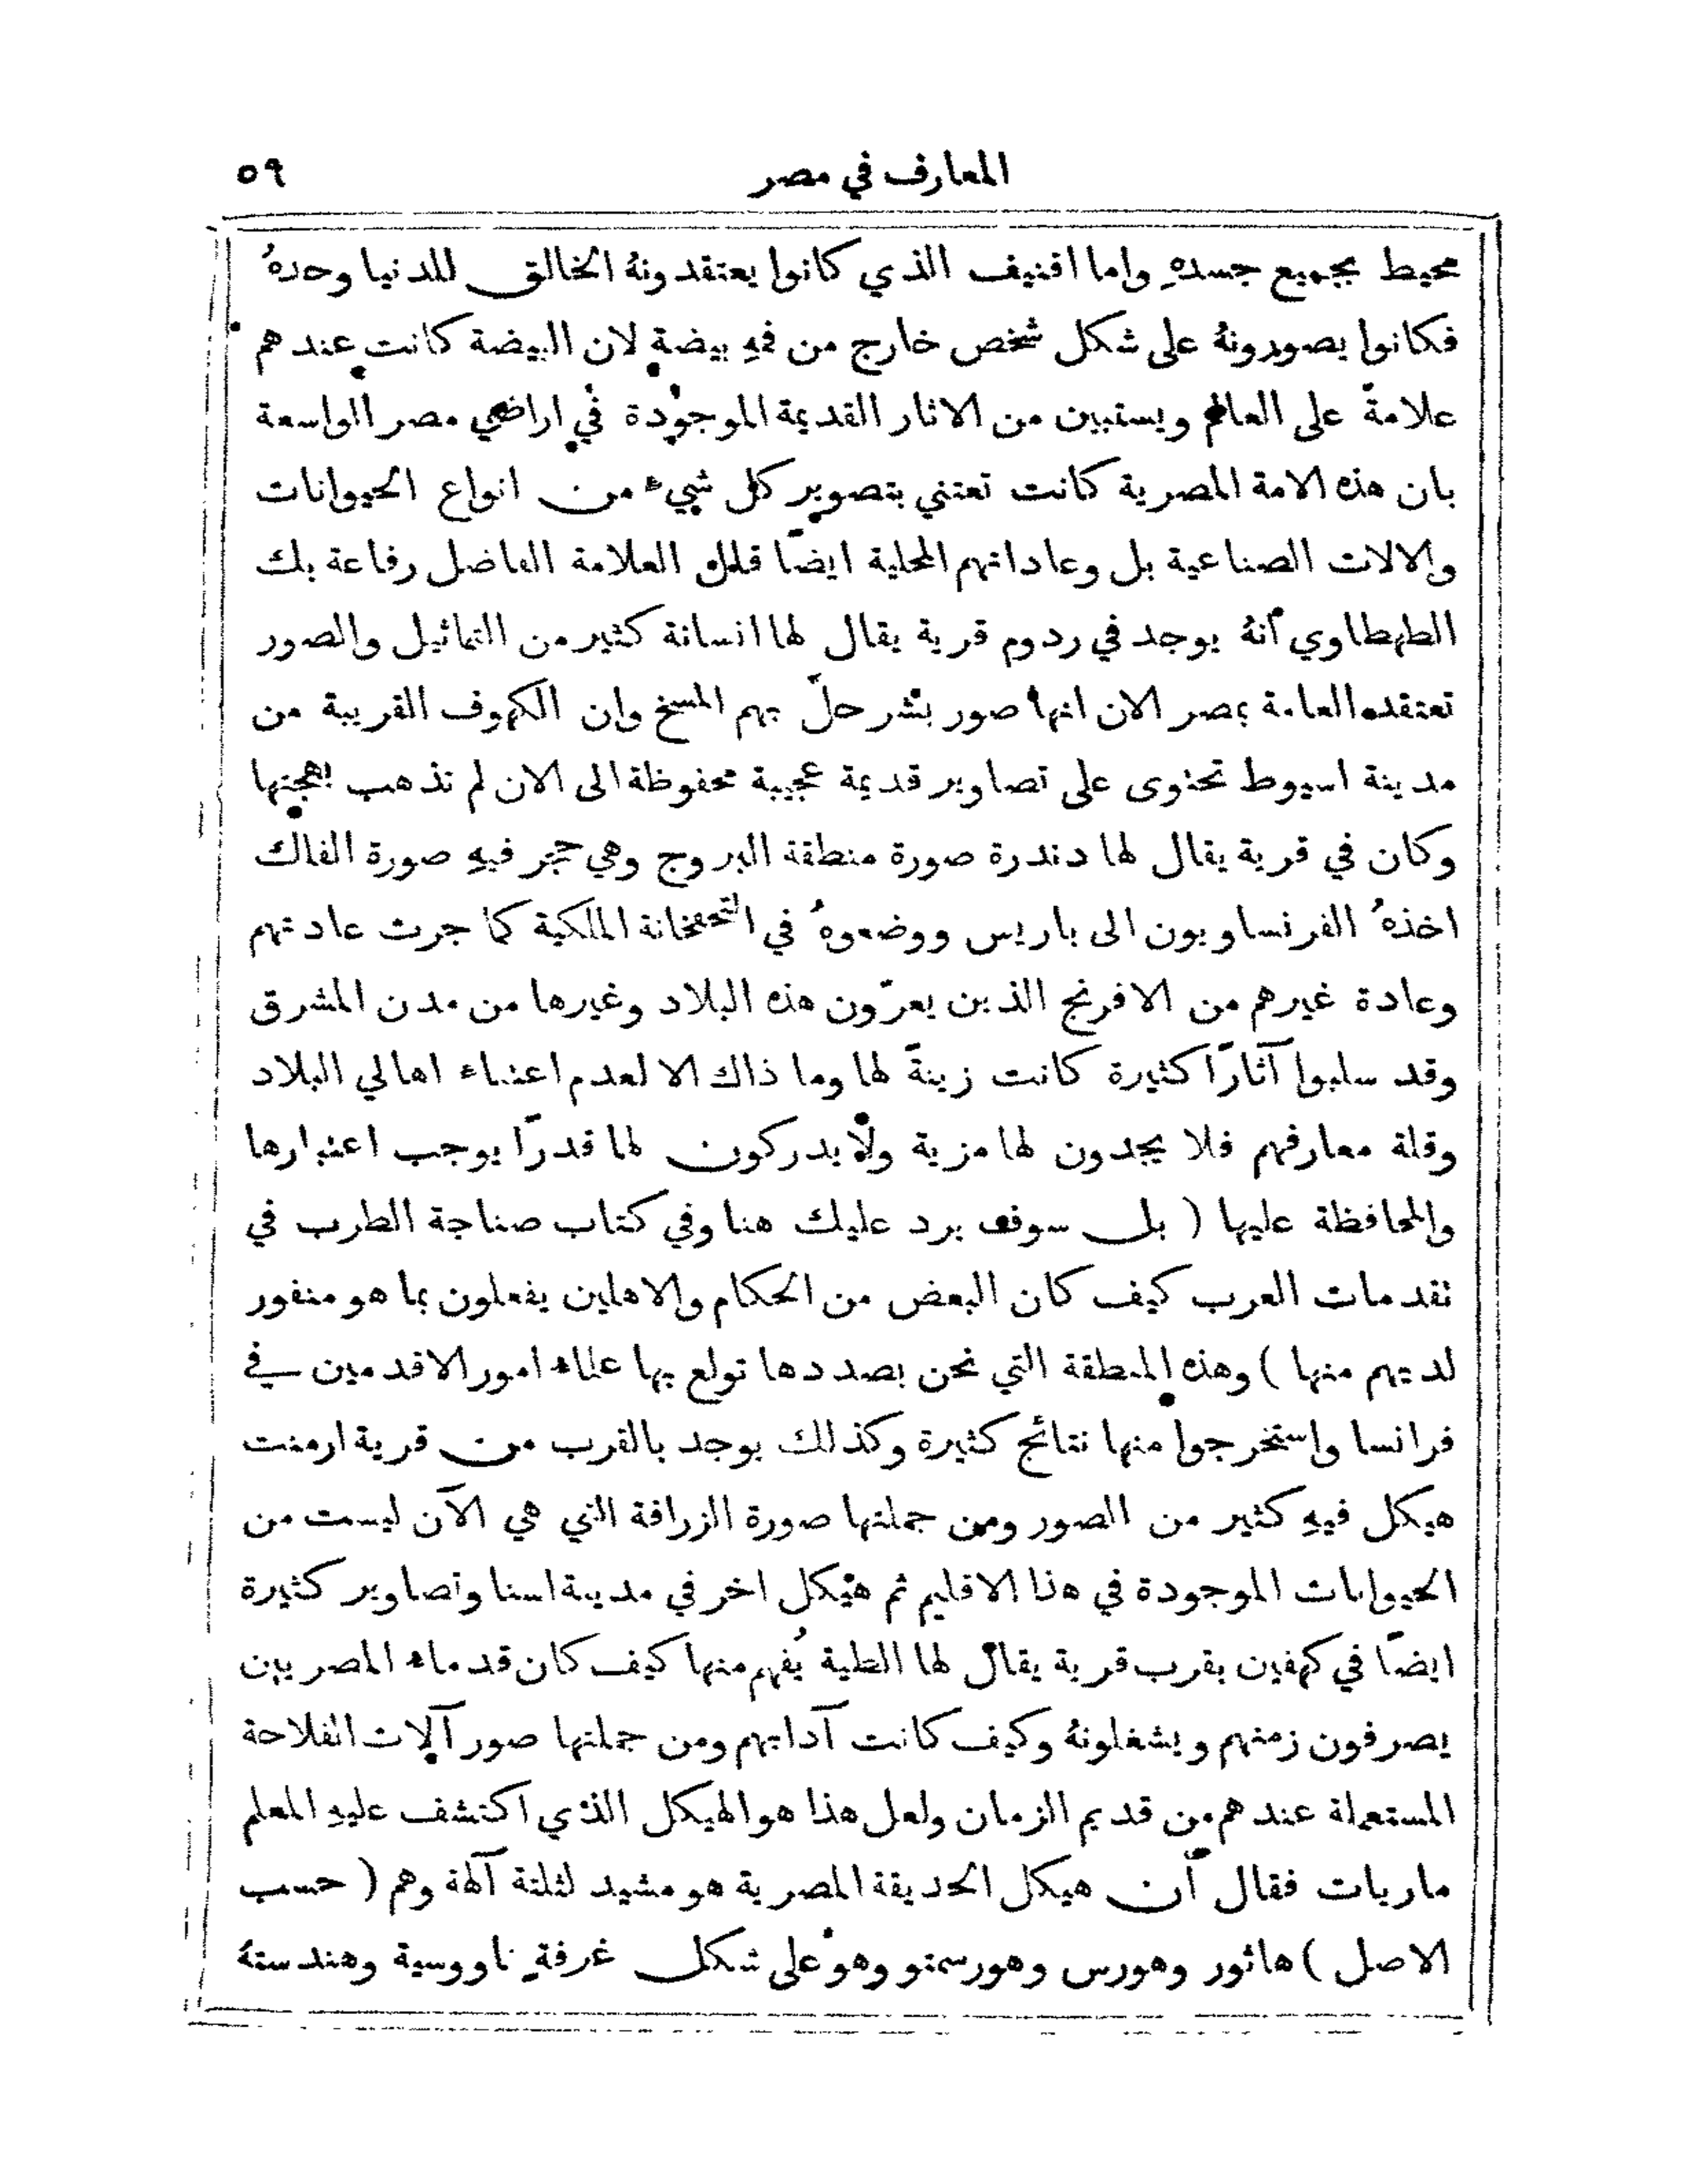 المعارف في مصر ٥٩
محيط بجميع جسدهِ واما اقنيف الذي كانوا يعتقدونهُ الخالق للدنيا وحدهُ
فكانوا يصورونهُ على شكل شخص خارج من فمهِ بيضة لان البيضة كانت عندهم
علامةً على العالم ويستبين من الاثار القديمة الموجودة في اراضي مصر الواسعة
بان هذه الامة المصرية كانت تعتني بتصوير كل شيء من انواع الحيوانات
والالات الصناعية بل وعاداتهم المحلية ايضًا قال العلامة الفاضل رفاعة بك
الطهطاوي أنهُ يوجد في ردوم قرية يقال لها انسانة كثير من التماثيل والصور
تعتقده العامة بمصر الان انها صور بشر حلّ بهم المسخ وان الكهوف القريبة من
مدينة اسيوط تحتوى على تصاوير قديمة عجيبة محفوظة الى الان لم تذهب بهجتها
وكان في قرية يقال لها دندرة صورة منطقة البروج وهي حجر فيهِ صورة الفلك
اخذهُ الفرنساويون الى باريس ووضعوهُ في التحفخانة الملكية كما جرت عادتهم
وعادة غيرهم من الافرنج الذين يعرّون هذه البلاد وغيرها من مدن المشرق
وقد سلبوا آثارًا كثيرة كانت زينةً لها وما ذاك الا لعدم اعتناء اهالي البلاد
وقلة معارفهم فلا يجدون لها مزية ولا يدركون لها قدرًا يوجب اعتبارها
والمحافظة عليها ( بل سوف يرد عليك هنا وفي كتاب صناجة الطرب في
تقدمات العرب كيف كان البعض من الحكام والاهلين يفعلون بما هو منفور
لديهم منها ) وهذه المنطقة التي نحن بصددها تولع بها علماء امور الاقدمين في
فرانسا واستخرجوا منها نتائج كثيرة وكذلك يوجد بالقرب من قرية ارمنت
هيكل فيهِ كثير من الصور ومن جملتها صورة الزرافة التي هي الآن ليست من
الحيوانات الموجودة في هذا الاقليم ثم هيكل اخر في مدينة اسنا وتصاوير كثيرة
ايضًا في كهفين بقرب قرية يقال لها الطلية يُفهم منها كيف كان قدماء المصريين
يصرفون زمنهم ويشغلونهُ وكيف كانت آدابهم ومن جملتها صور آلات الفلاحة
المستعملة عندهم من قديم الزمان ولعل هذا هو الهيكل الذي اكتشف عليهِ المعلم
ماريات فقال أن هيكل الحديقة المصرية هو مشيد لثلثة آلهة وهم ( حسب
الاصل ) هاثور وهورس وهورسمتو وهو على شكل غرفةٍ ناووسية وهندستهُ